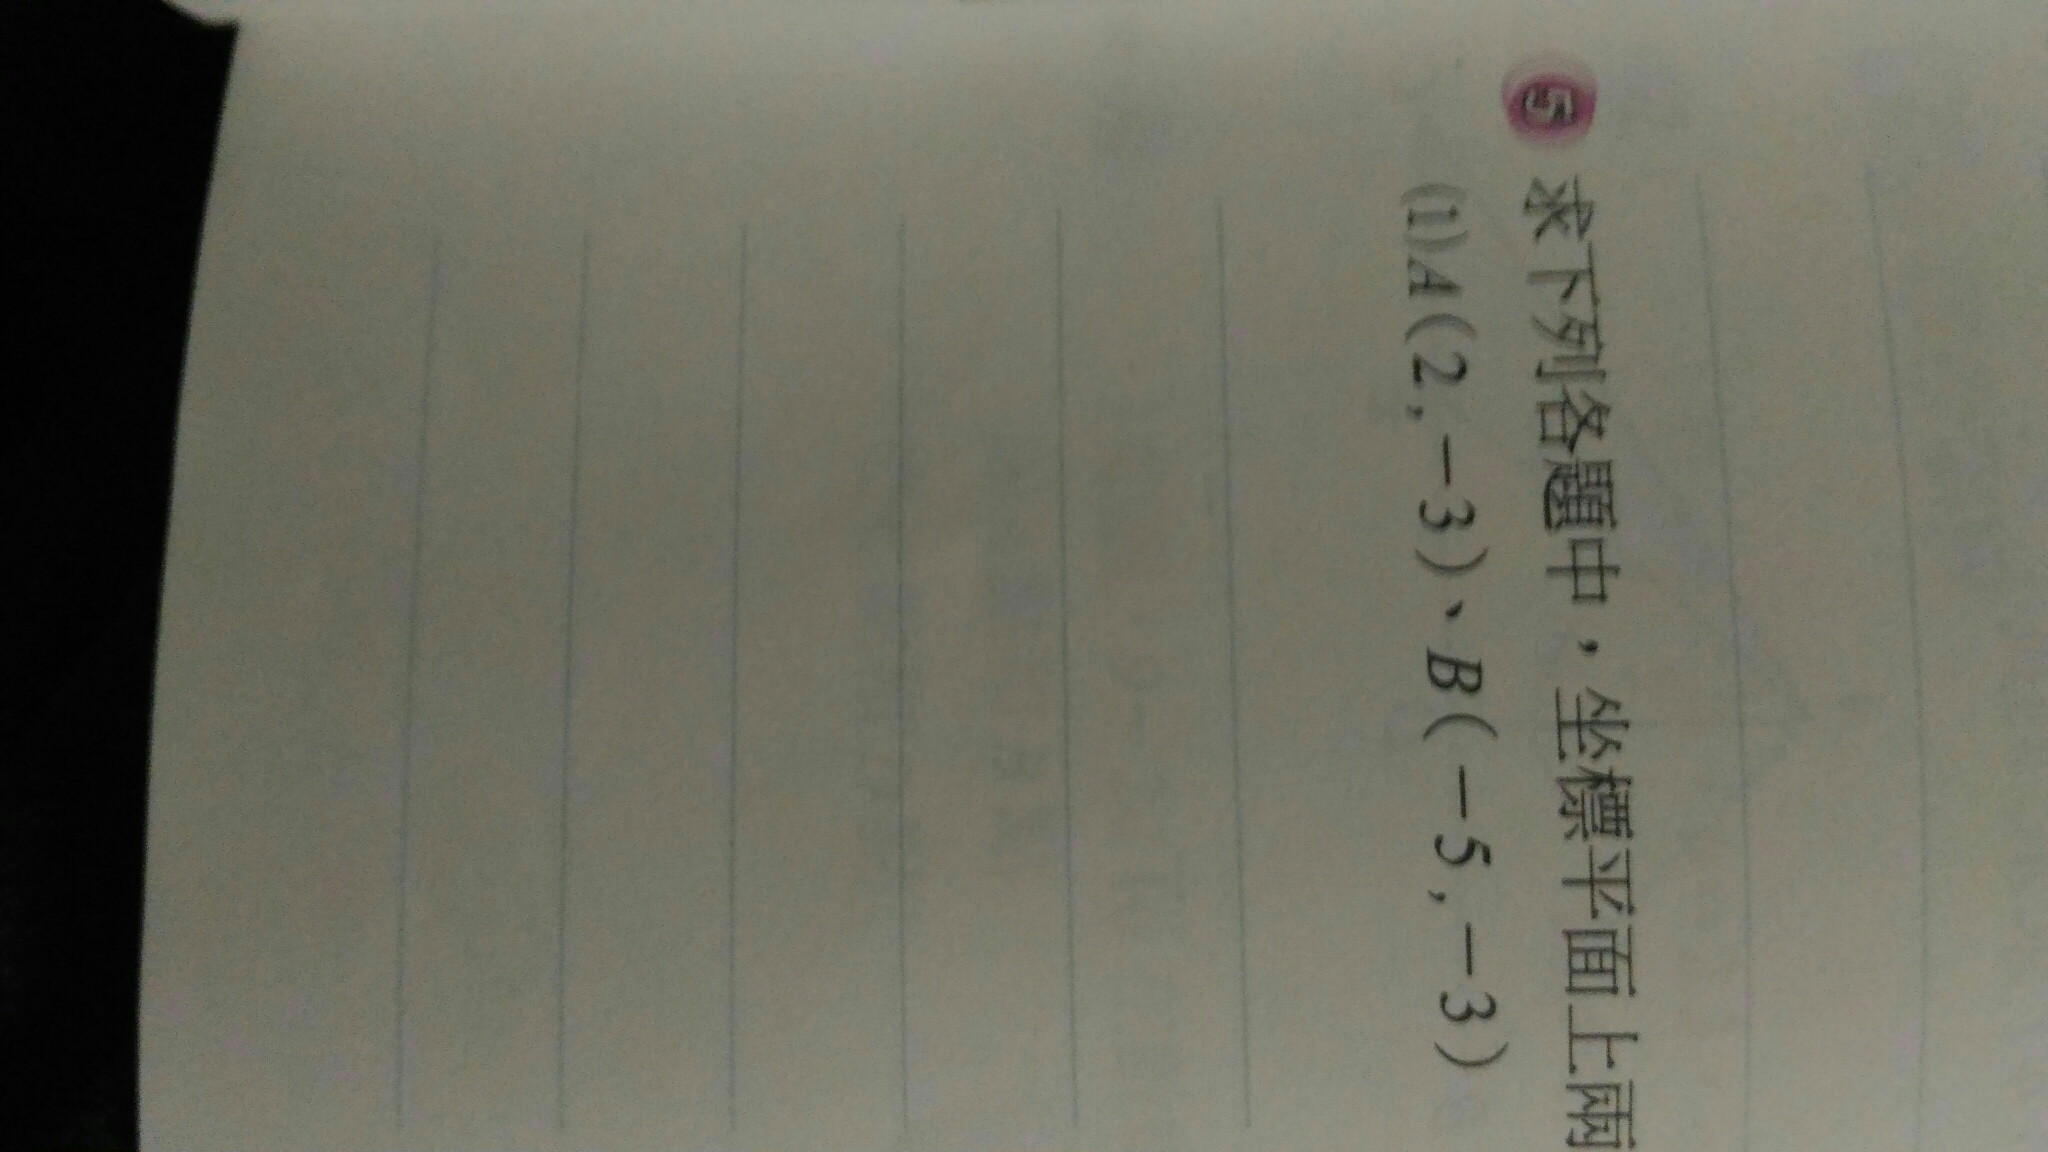 5 求下列各題中，坐標平面上兩
(1)A(2,-3)、B(-5,-3)